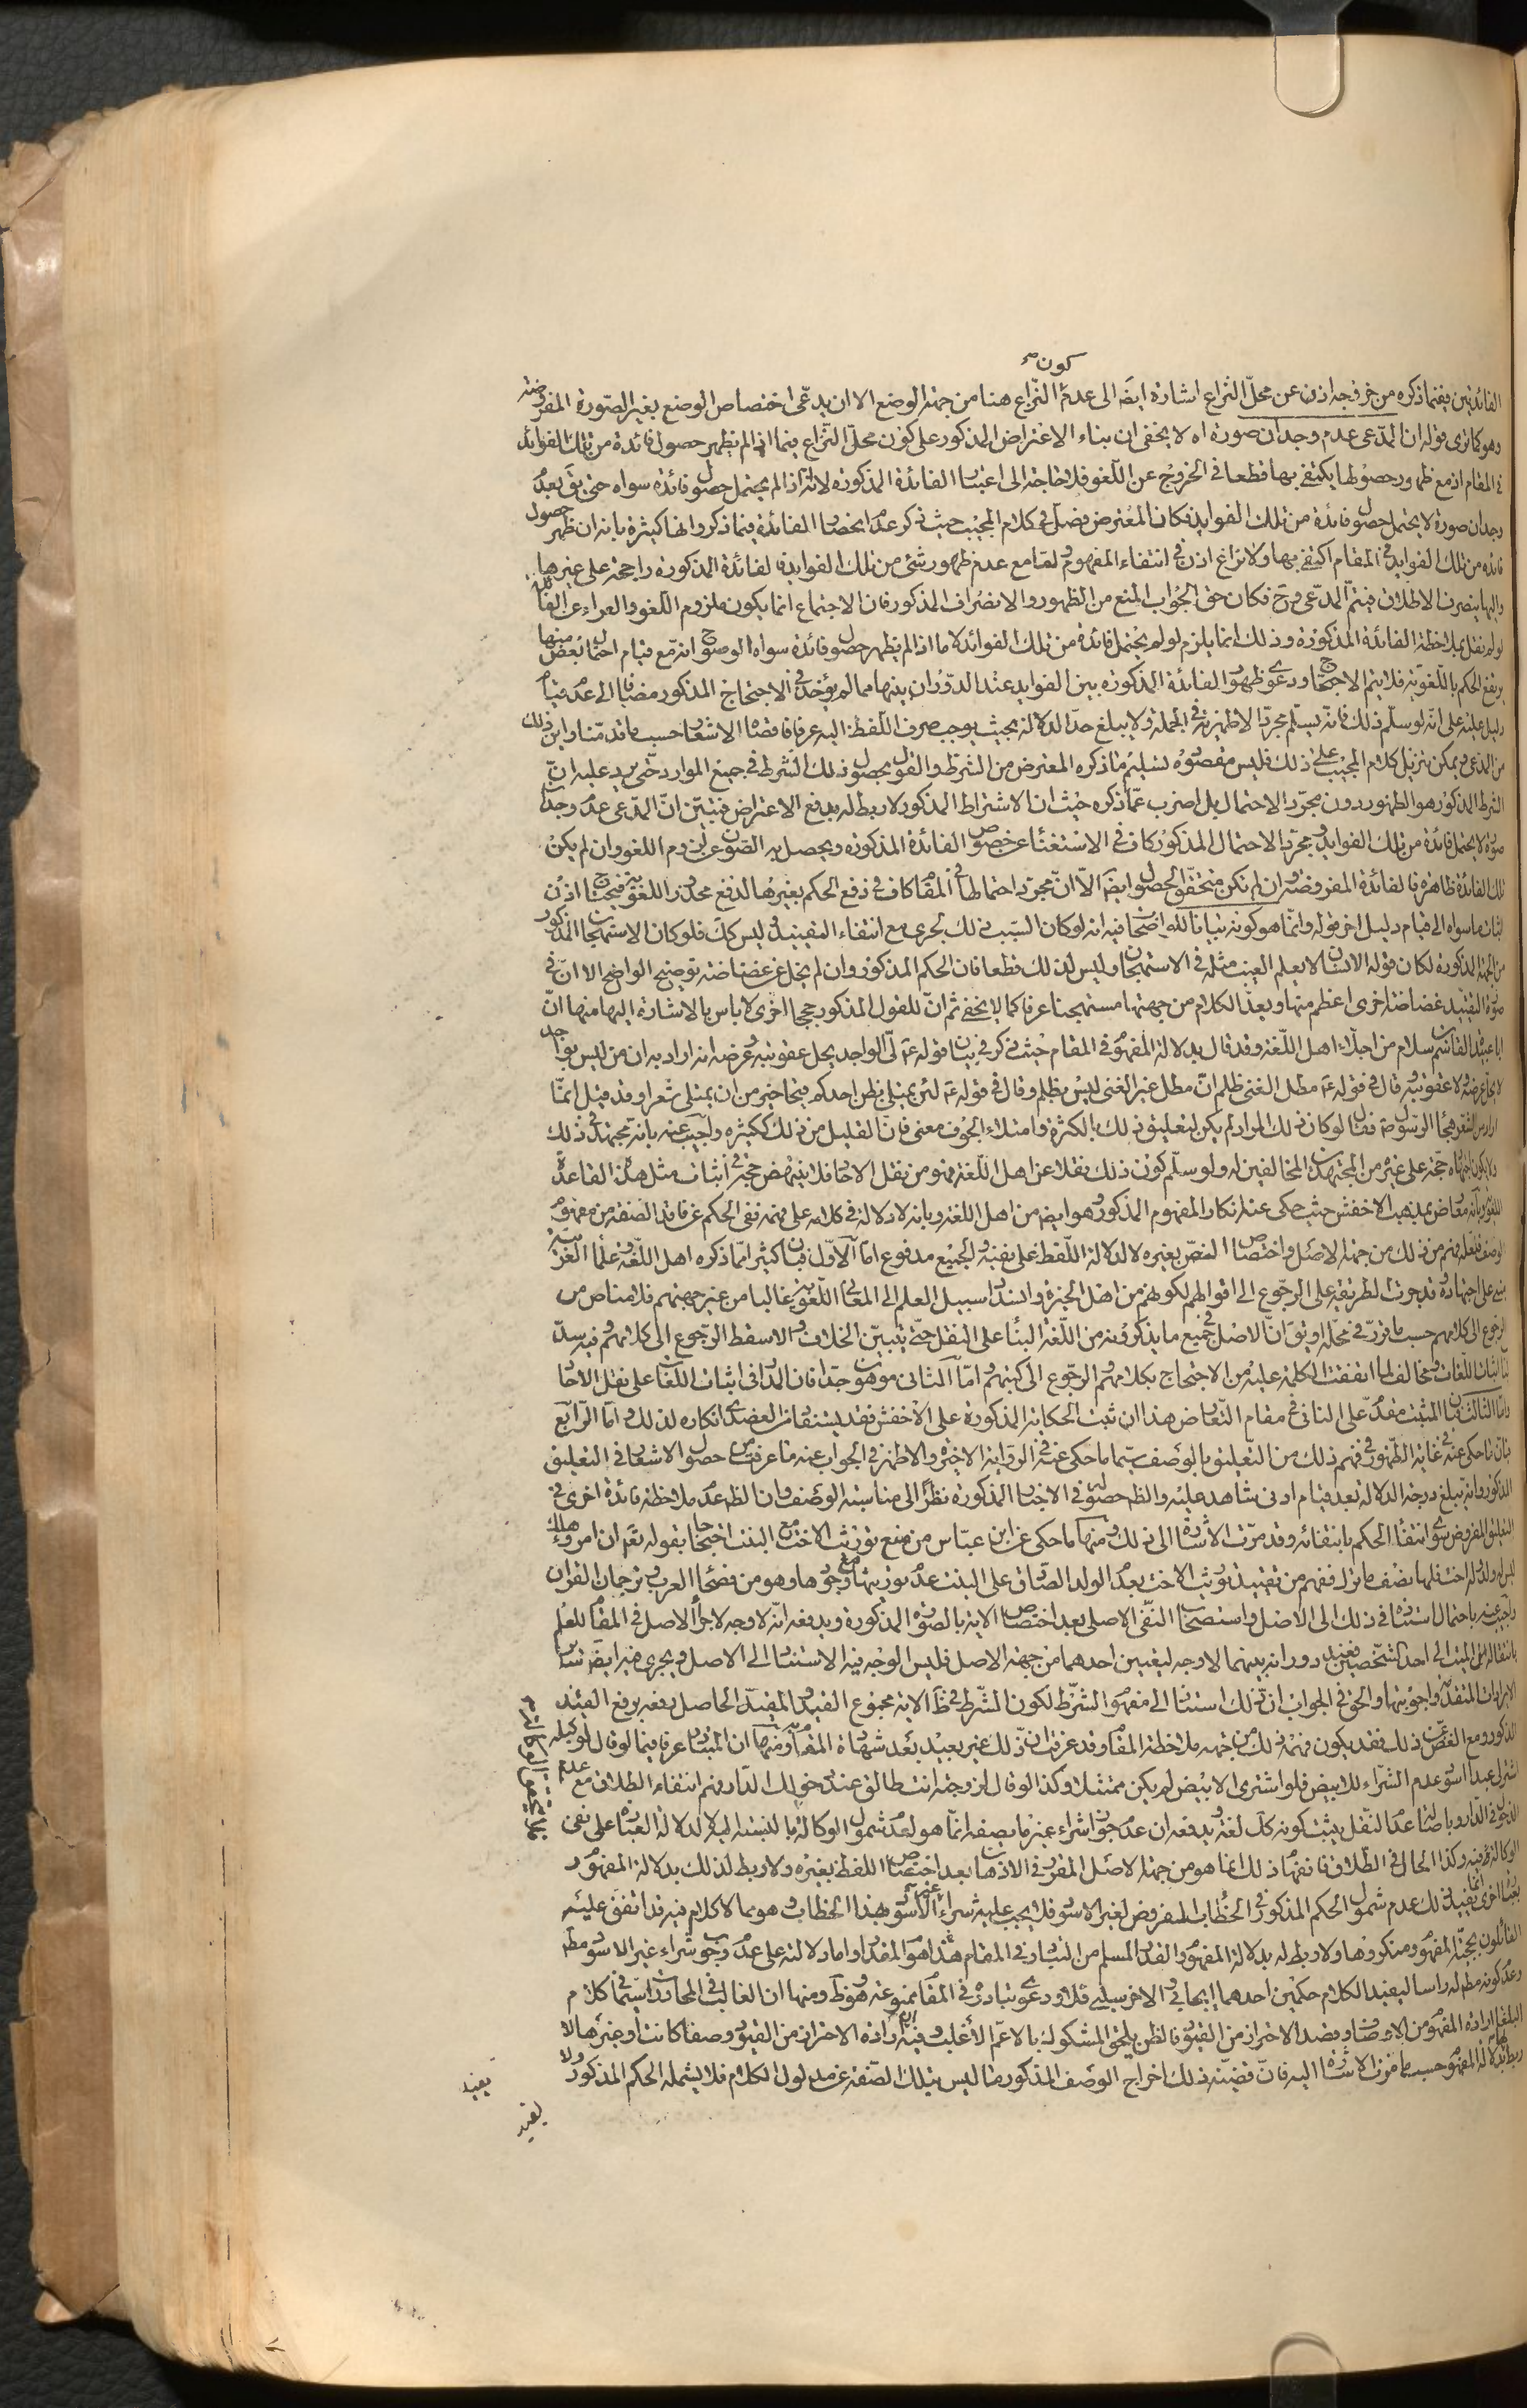 كون صح
الفائدتين فيفما ذكره من خروجه اذن عن محل النزاع اشارة ايضا الى عدم النزاع هنا من جهة الوضع الا ان يدعى اختصاص الوضع بغير الصورة المفروضة
وهو كما ترى قوله ان المدعى عدم وجدان صورة اه لا يخفى ان بناء الاعتراض المذكور على كون محل النزاع فيما اذا لم يظهر حصول فائدة من تلك الفوائد
في المقام اذ مع ظهور حصولها يكتفى بها قطعا في الخروج عن اللغو فلا حاجة الى اعتبار الفائدة المذكورة لا انه اذا لم يحتمل حصول فائدة سواه حتى يق بعدم
وجدان صورة لا يحتمل حصول فائدة من تلك الفوايد فكان المعترض فصل في كلام المجيب حيث ذكر عدم انحصار الفائدة فيما ذكر وانها كثيرة بانه ان ظهر حصول
فائدة من تلك الفوايد في المقام اكتفى بها ولا نزاع اذن في انتفاء المفهوم واما مع عدم ظهور شئ من تلك الفوايد فالفائدة المذكورة راجحة على غيرها
واليها ينصرف الاطلاق فيتم المدعى وح فكان حق الجواب المنع من الظهور والانصراف المذكور فان الاجتماع انما يكون ملزوم اللغو والعراء عن الفائدة
لو لم نقل بملاحظة الفائدة المذكورة وذلك انما يلزم لو لم يحتمل فائدة من تلك الفوائد لا ما اذا لم يظهر حصول فائدة سواه لوضوح انه مع قيام احتمال بعض منها
يرتفع الحكم باللغوية فلا يتم الاحتجاج ودعوى ظهور الفائدة المذكورة بين الفوايد عند الدوران بينها مما لم يؤخذ في الاحتجاج المذكور مضافا الى عدم قيام
دليل عليه على انه لو سلم ذلك فانه يسلم مجرد الاظهرية في الجملة ولا يبلغ حد الدلالة بحيث يوجب صرف اللفظ اليه عرفا فاقصاه الاشعار حسب ما قدمنا واين ذلك
من المدعى ويمكن تنزيل كلام المجيب على ذلك فليس مقصوده تسليم ما ذكره المعترض من الشرط والقول بحصول ذلك الشرط في جميع الموارد حتى يرد عليه ان
الشرط المذكور هو الظهور دون مجرد الاحتمال بل اضرب عما ذكره حيث ان الاشتراط المذكور لا ربط له بدفع الاعتراض فتبين ان المدعى عدم وجدان
صورة لا يحتمل فائدة من تلك الفوايد ومجرد الاحتمال المذكور كاف في الاستغناء عن خصوص الفائدة المذكورة ويحصل به الصون عن لزوم اللغو وان لم يكن
تلك الفائدة ظاهرة فالفائدة المفروضة وان لم تكن متحققة الحصول ايضا الا ان مجرد احتمالها في المقام كاف في دفع الحكم بغيرها لدفع محذور اللغوية فيحتاج اذن
اثبات ما سواه الى قيام دليل اخر قوله وانما هو كونه بيانا للواضحات فيه انه لو كان السبب ذلك لجرى مع انتفاء التقييد وليس كك فلو كان الاستهجان المذكور
من الجهة المذكورة لكان قوله الانسان لا يعلم الغيب مثله في الاستهجان وليس كذلك قطعا فان الحكم المذكور وان لم يخل عن غضاضة توضيح الواضح الا ان في
صورة التقييد غضاضة اخرى اعظم منها ويعد الكلام من جهتها مستهجنا عرفا كما لا يخفى ثم ان للقول المذكور حججا اخرى لا باس بالاشارة اليها منها ان
ابا عبيد القاسم بن سلام من اجلاء اهل اللغة وقد قال بدلالة المفهوم في المقام حيث ذكر في بيان قوله ع لى الواجد يحل عقوبته وعرضه انه اراد به ان من ليس بواجد
لا يحل عرضه ولا عقوبته وقال في قوله ع مطل الغنى ظلم ان مطل غير الغنى ليس بظلم وقال في قوله ع لئن يمتلى بطن احدكم قيحا خير من ان يمتلى شعرا وقد قيل انما
اراد من الشعر هجاء الرسول ص فقال لو كان ذلك المراد لم يكن لتعليق ذلك بالكثرة وامتلاء الجوف معنى فان القليل من ذلك ككثيره واجيب عنه بانه مجتهد في ذلك
ولا يكون اجتهاده حجة على غيره من المجتهدين المخالفين له ولو سلم كون ذلك نقلا عن اهل اللغة فهو من نقل الاحاد فلا ينهض حجة في اثبات مثل هذه القاعدة
اللغوية وبانه معارض بمذهب الاخفش حيث حكى عنه انكار المفهوم المذكور وهو ايضا من اهل اللغة وبانه لا دلالة في كلامه على فهمه نفى الحكم عن فاقد الصفة من مفهوم
الوصف فلعله فهم من ذلك من جهة الاصل واختصاص النص بغيره لا لدلالة اللفظ على نفيه والجميع مدفوع اما الاول فبان كثيرا مما ذكره اهل اللغة وعلماء العربية
مبنى على اجتهادهم وقد جرت الطريقة على الرجوع الى اقوالهم لكونهم من اهل الخبرة وانسداد سبيل العلم الى المعانى اللغوية غالبا من غير جهتهم فلا مناص من
الرجوع الى كلامهم حسب ما قرر في محله او يق ان الاصل في جميع ما يذكرونه من اللغة البناء على النقل حتى يتبين الخلاف والا سقط الرجوع الى كلامهم فيه سد
باب اثبات اللغات ومخالف لما اتفقت الكلمة عليه من الاحتجاج بكلامهم والرجوع الى كتبهم واما الثانى فهو موهون جدا فان المدار في اثبات اللغات على نقل الاحاد
واما الثالث فبان المثبت مقدم على النافى في مقام التعارض هذا ان ثبت الحكاية المذكورة على الاخفش فقد يستفاد من العضدى انكاره لذلك واما الرابع
فبان ما حكى عنه في غاية الظهور في فهم ذلك من التعليق بالوصف سيما ما حكى عنه في الرواية الاخيرة والاظهر في الجواب عنه ما عرفت من حصول الاشعار في التعليق
المذكور وانه تبلغ درجة الدلالة بعد قيام ادنى شاهد عليه والظ حصوله في الاخبار المذكورة نظرا الى مناسبة الوصف وان الظ عدم ملاحظة فائدة اخرى في
التعليق المفروض سوى انتفاء الحكم بانتفائه وقد مرت الاشارة الى ذلك ومنها ما حكى عن ابن عباس من منع توريث الاخت مع البنت احتجاجا بقوله تعم ان امرؤ هلك
ليس له ولد وله اخت فلها نصف ما ترك ففهم من تقييد توريث الاخت بعدم الولد الصادق على البنت عدم توريثها مع وجودها وهو من فصحاء العرب وترجمان القران
واجيب عنه باحتمال استناده في ذلك الى الاصل واستصحاب النفى الاصلى بعد اختصاص الاية بالصورة المذكورة ويدفعه انه لا وجه لاجراء الاصل في المقام للعلم
بانتقال مال الميت الى احد الشخصين فبعد دورانه بينهما لا وجه لتعيين احدهما من جهة الاصل فليس الوجه فيه الاستناد الى الاصل ويجرى فيه ايضا سائر
الايرادات المتقدمة واجوبتها والحق في الجواب ان ذلك استناد الى مفهوم الشرط لكون الشرط في ظ الاية مجموع القيد والمقيد الحاصل رفعه برفع القيد
المذكور ومع الغض عن ذلك فقد يكون فهمه ذلك من جهة ملاحظة المقام وقد عرفت ان ذلك غير بعيد بعد شهادة المقام ومنها ان المتبادر عرفا فيما لو قال لوكيله
اشتر لى عبدا اسود عدم الشراء للابيض فلو اشترى الابيض لم يكن ممتثلا وكذا لو قال لزوجته انت طالق عند دخولك الدار فهم انتفاء الطلاق مع عدم
الدخول في الدار وباصالة عدم النقل يثبت كونه كك لغة ويدفعه ان عدم جواز شراء غير ما يصفه انما هو لعدم شمول الوكالة بالنسبة اليه لا لدلالة العبارة على نفى
الوكالة فيه وكذا الحال في الطلاق فانفهام ذلك انما هو من جهة الاصل المقرر في الاذهان بعد اختصاص اللفظ بغيره ولا ربط لذلك بدلالة المفهوم
بعبارة اخرى انما يفيد ذلك عدم شمول الحكم المذكور في الخطاب المفروض لغير الاسود فلا يجب عليه شراء غير الاسود بهذا الخطاب وهو مما لا كلام فيه قد اتفق عليه
القائلون بحجية المفهوم ومنكروها ولا ربط له بدلالة المفهوم والقدر المسلم من التبادر في المقام هذا هو المقدار واما دلالته على عدم وجوب شراء غير الاسود مطم
وعدم كونه مط له راسا ليفيد الكلام حكمين احدهما ايجابى والاخر سلبى فلا ودعوى تبادره في المقام ممنوعة وهو ظ ومنها ان الغالب في المحاورات سيما في كلام
البلغاء ارادة المفهوم من الاوصاف وقصد الاحتراز من القيود فالظن يلحق المشكوك بالاعم الاغلب وفيه ان ارادة الاحتراز من القيود وصفا كانت او غيرها لا
ربط له بدلالة المفهوم حسب ما مرت الاشارة اليه فان قضية ذلك اخراج الوصف المذكور ما ليس بتلك الصفة عن مدلول الكلام فلا يشمله الحكم المذكور ولا
يفيد